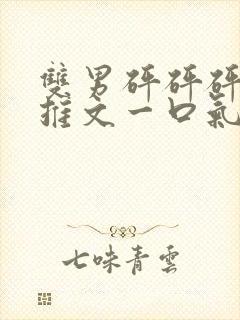 雙男砰砰砰
推文一口氣
七味青雲